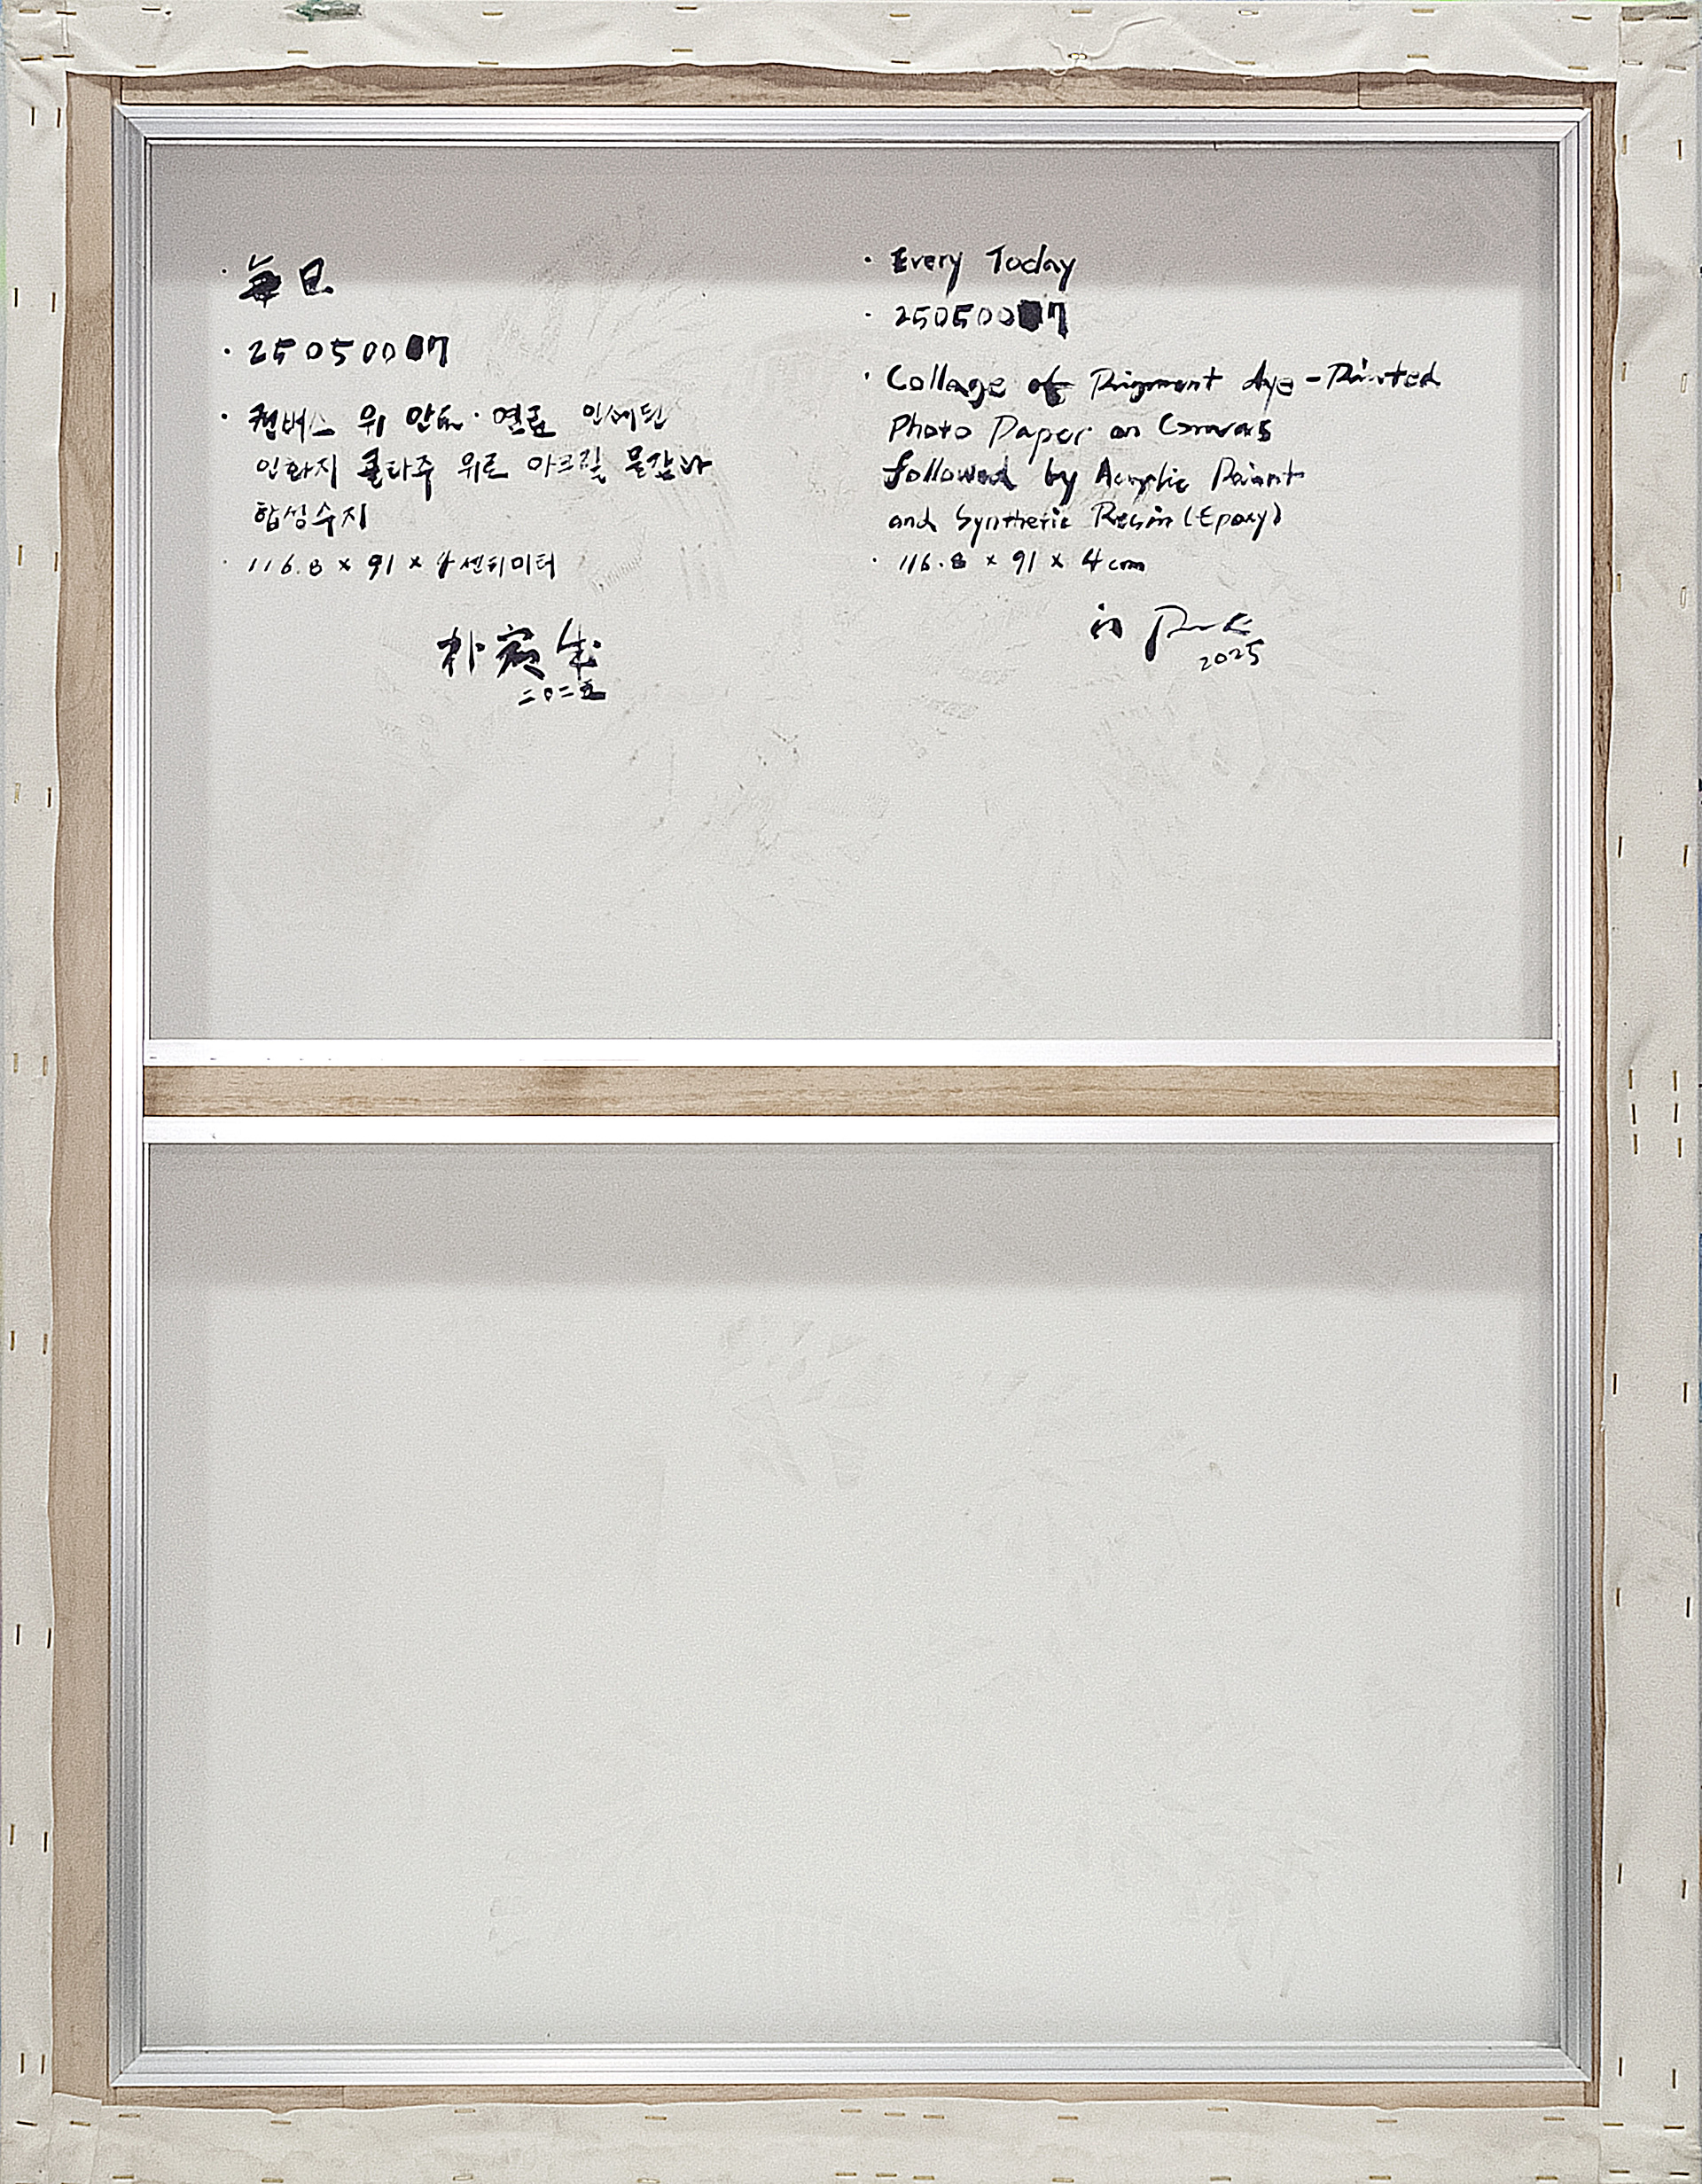 每日
250500 7
캔버스 위 안료·염료 인쇄된
인화지 콜라주 위로 아크릴 물감과
합성수지
116.8 × 91 × 4 센티미터
朴
二〇二五
Every Today
250500 7
Collage of Pigment dye-Printed
Photo Paper on Canvas
followed by Acrylic Paint
and Synthetic Resin (Epoxy)
116.8 × 91 × 4 cm
in Park
2025